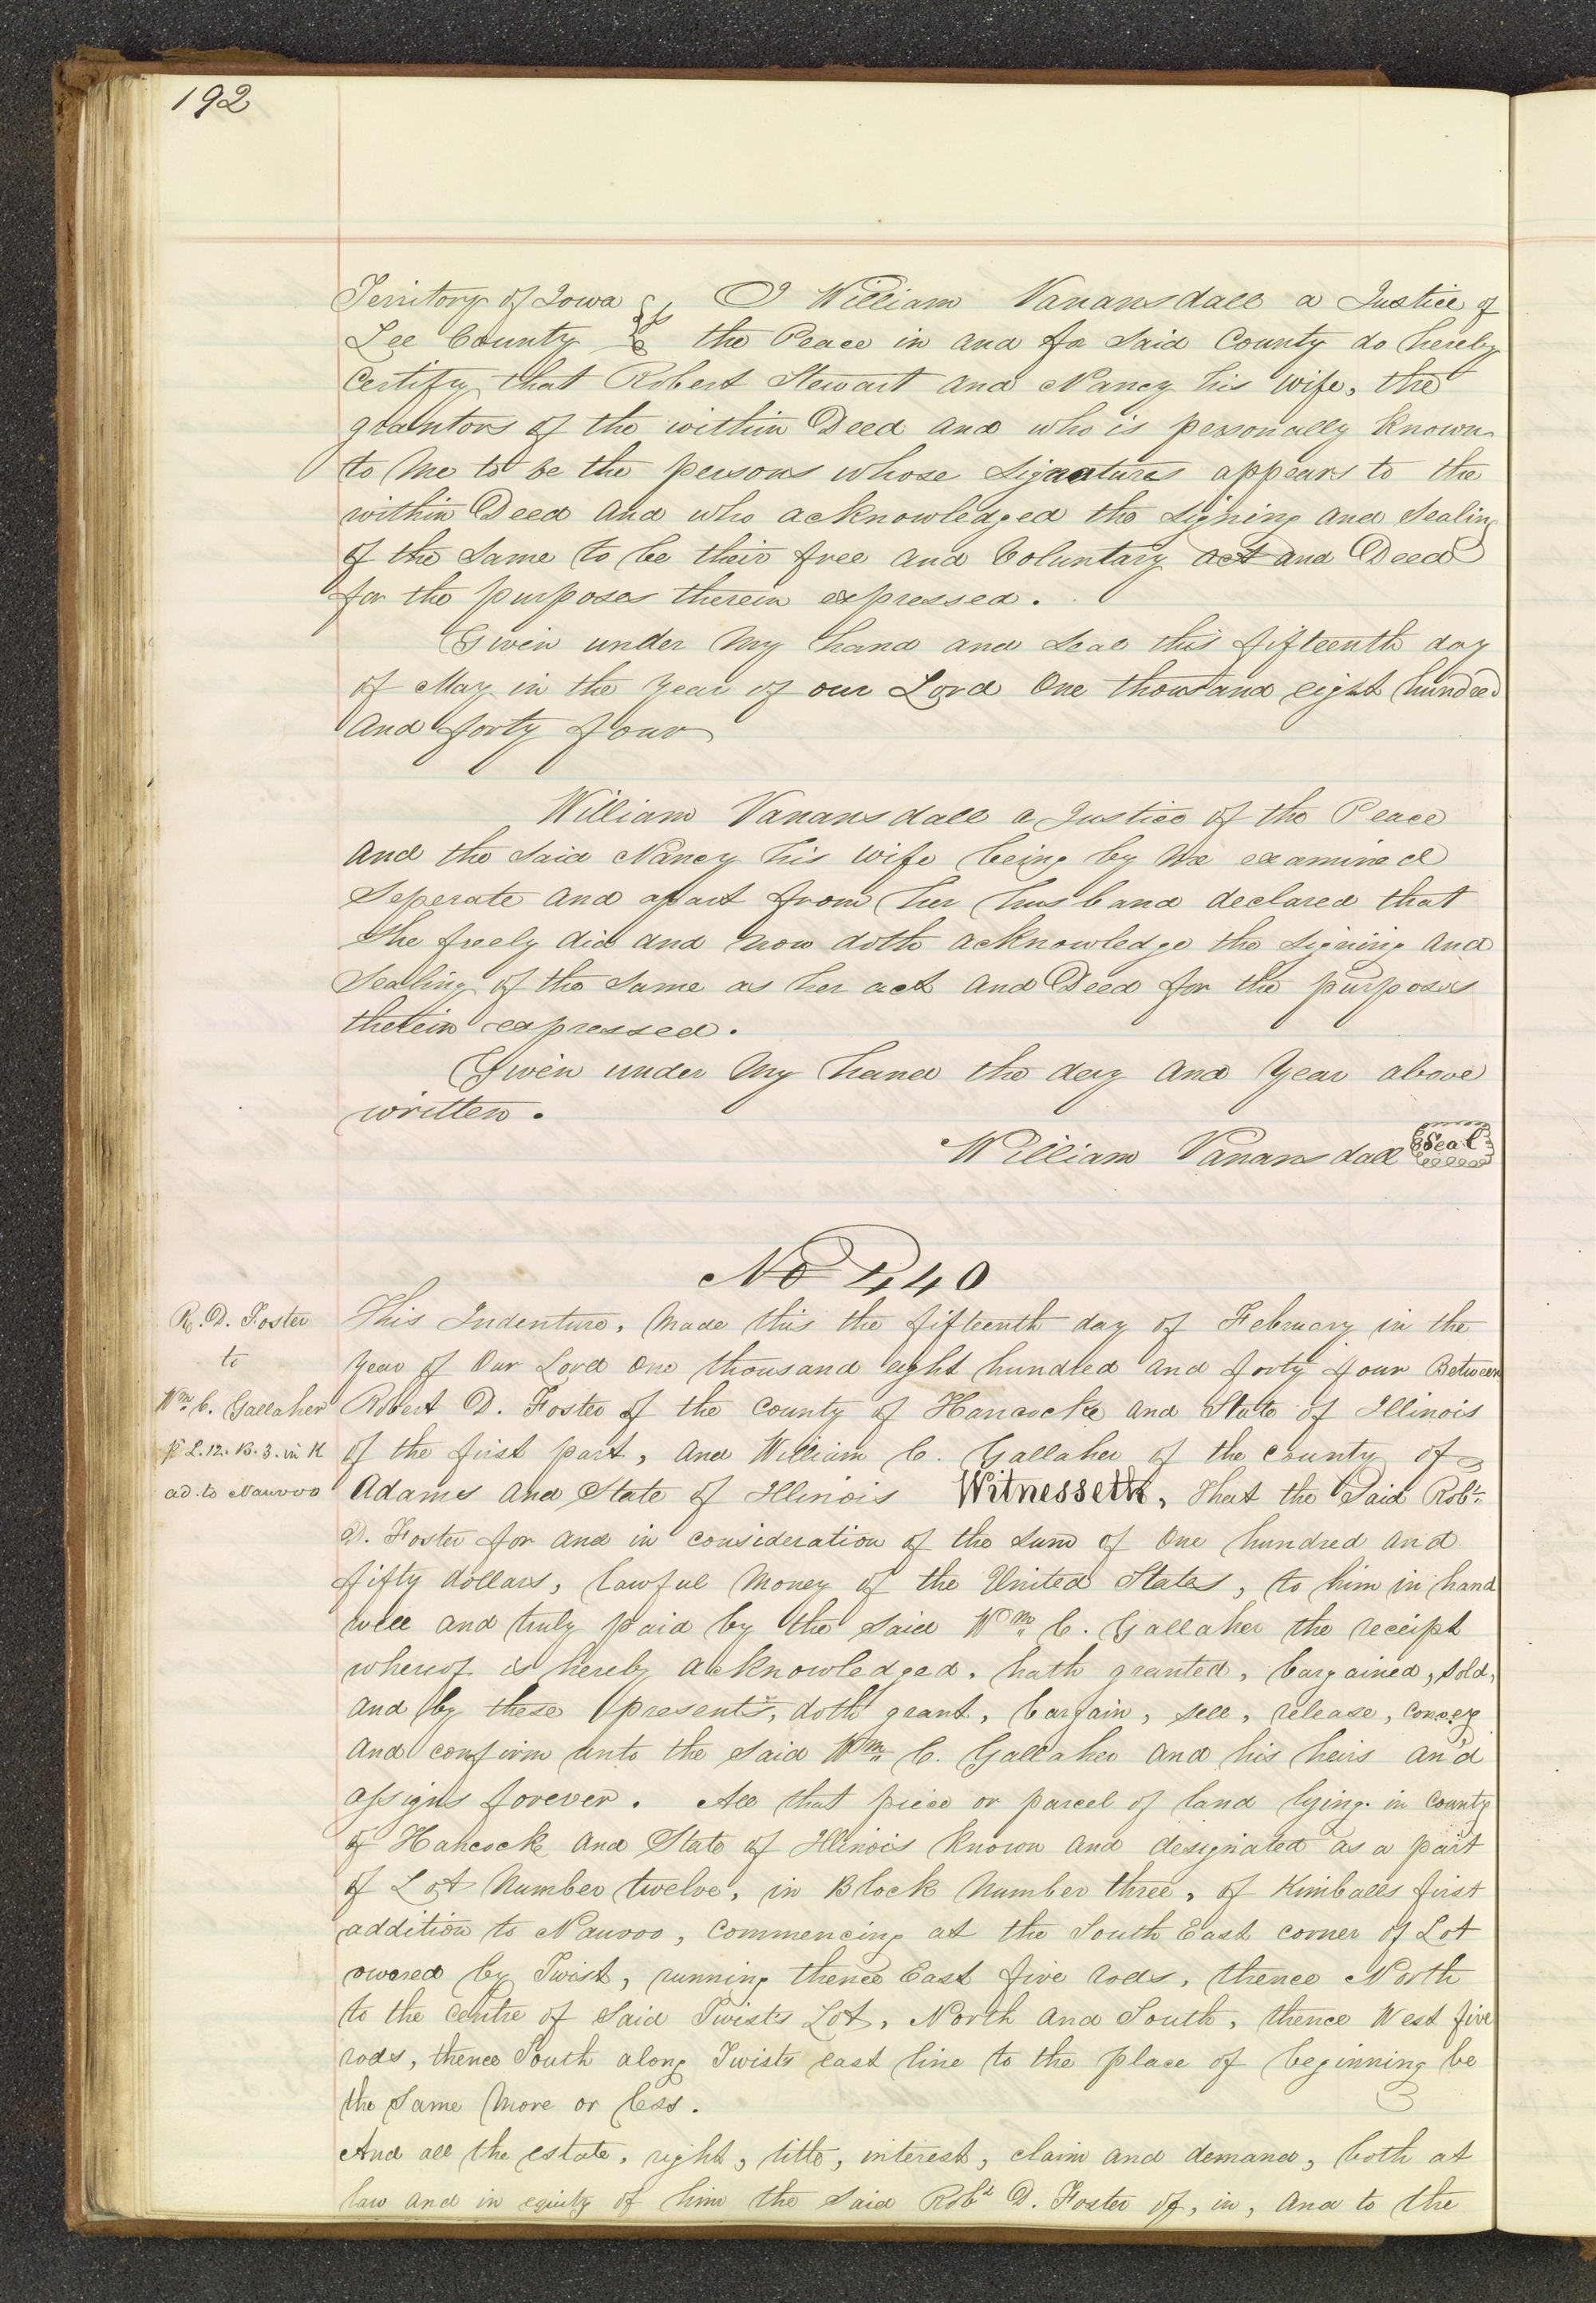 192
Territory of Iowa } I William Vanansdall a Justice of
Lee County } the Peace in and for said County do hereby
Certify that Robert Stewart and Nancy his wife, the
grantors of the within Deed and who is personally known
to me to be the persons whose signatures appears to the
within Deed and who acknowledged the signing and sealing
of the same to be their free and Voluntary act and Deed
for the purposes therein expressed.
Given under my hand and seal this fifteenth day
of May in the year of our Lord One thousand eight hundred
and forty four
William Vanansdall a Justice of the Peace
and the said Nancy his wife being by me examined
seperate and apart from her husband declared that
she freely did and now doth acknowledge the signing and
sealing of the same as her act and Deed for the purposes
therein expressed.
Given under my hand the day and year above
written.
William Vanansdall Seal
No 440
R. D. Foster
to
Wm C. Gallaher
pt L. 12. B. 3. in K
ad. to Nauvoo
This Indenture, made this the fifteenth day of February in the
year of Our Lord One thousand eight hundred and forty four Between
Robert D. Foster of the County of Hancocke and State of Illinois
of the first part, and William C. Gallaher of the County of
Adams and State of Illinois Witnesseth, That the said Robt
D. Foster for and in consideration of the sum of One hundred and
fifty dollars, lawful money of the United States, to him in hand
well and truly paid by the said Wm C. Gallaher the receipt
whereof is hereby acknowledged, hath granted, bargained, sold,
and by these presents, doth grant, bargain, sell, release, convey
and confirm unto the said Wm C. Gallaher and his heirs and
assigns forever. All that piece or parcel of land lying in County
of Hancock and State of Illinois known and designated as a part
of Lot Number twelve, in Block Number three, of Kimballs first
addition to Nauvoo, commencing at the South East corner of Lot
owned by Twist, running thence East five rods, thence North
to the centre of said Twists Lot, North and South, thence West five
rods, thence South along Twists east line to the place of beginning be
the same more or less.
And all the estate, right, title, interest, claim and demand, both at
law and in equity of him the said Robt D. Foster of, in, and to the